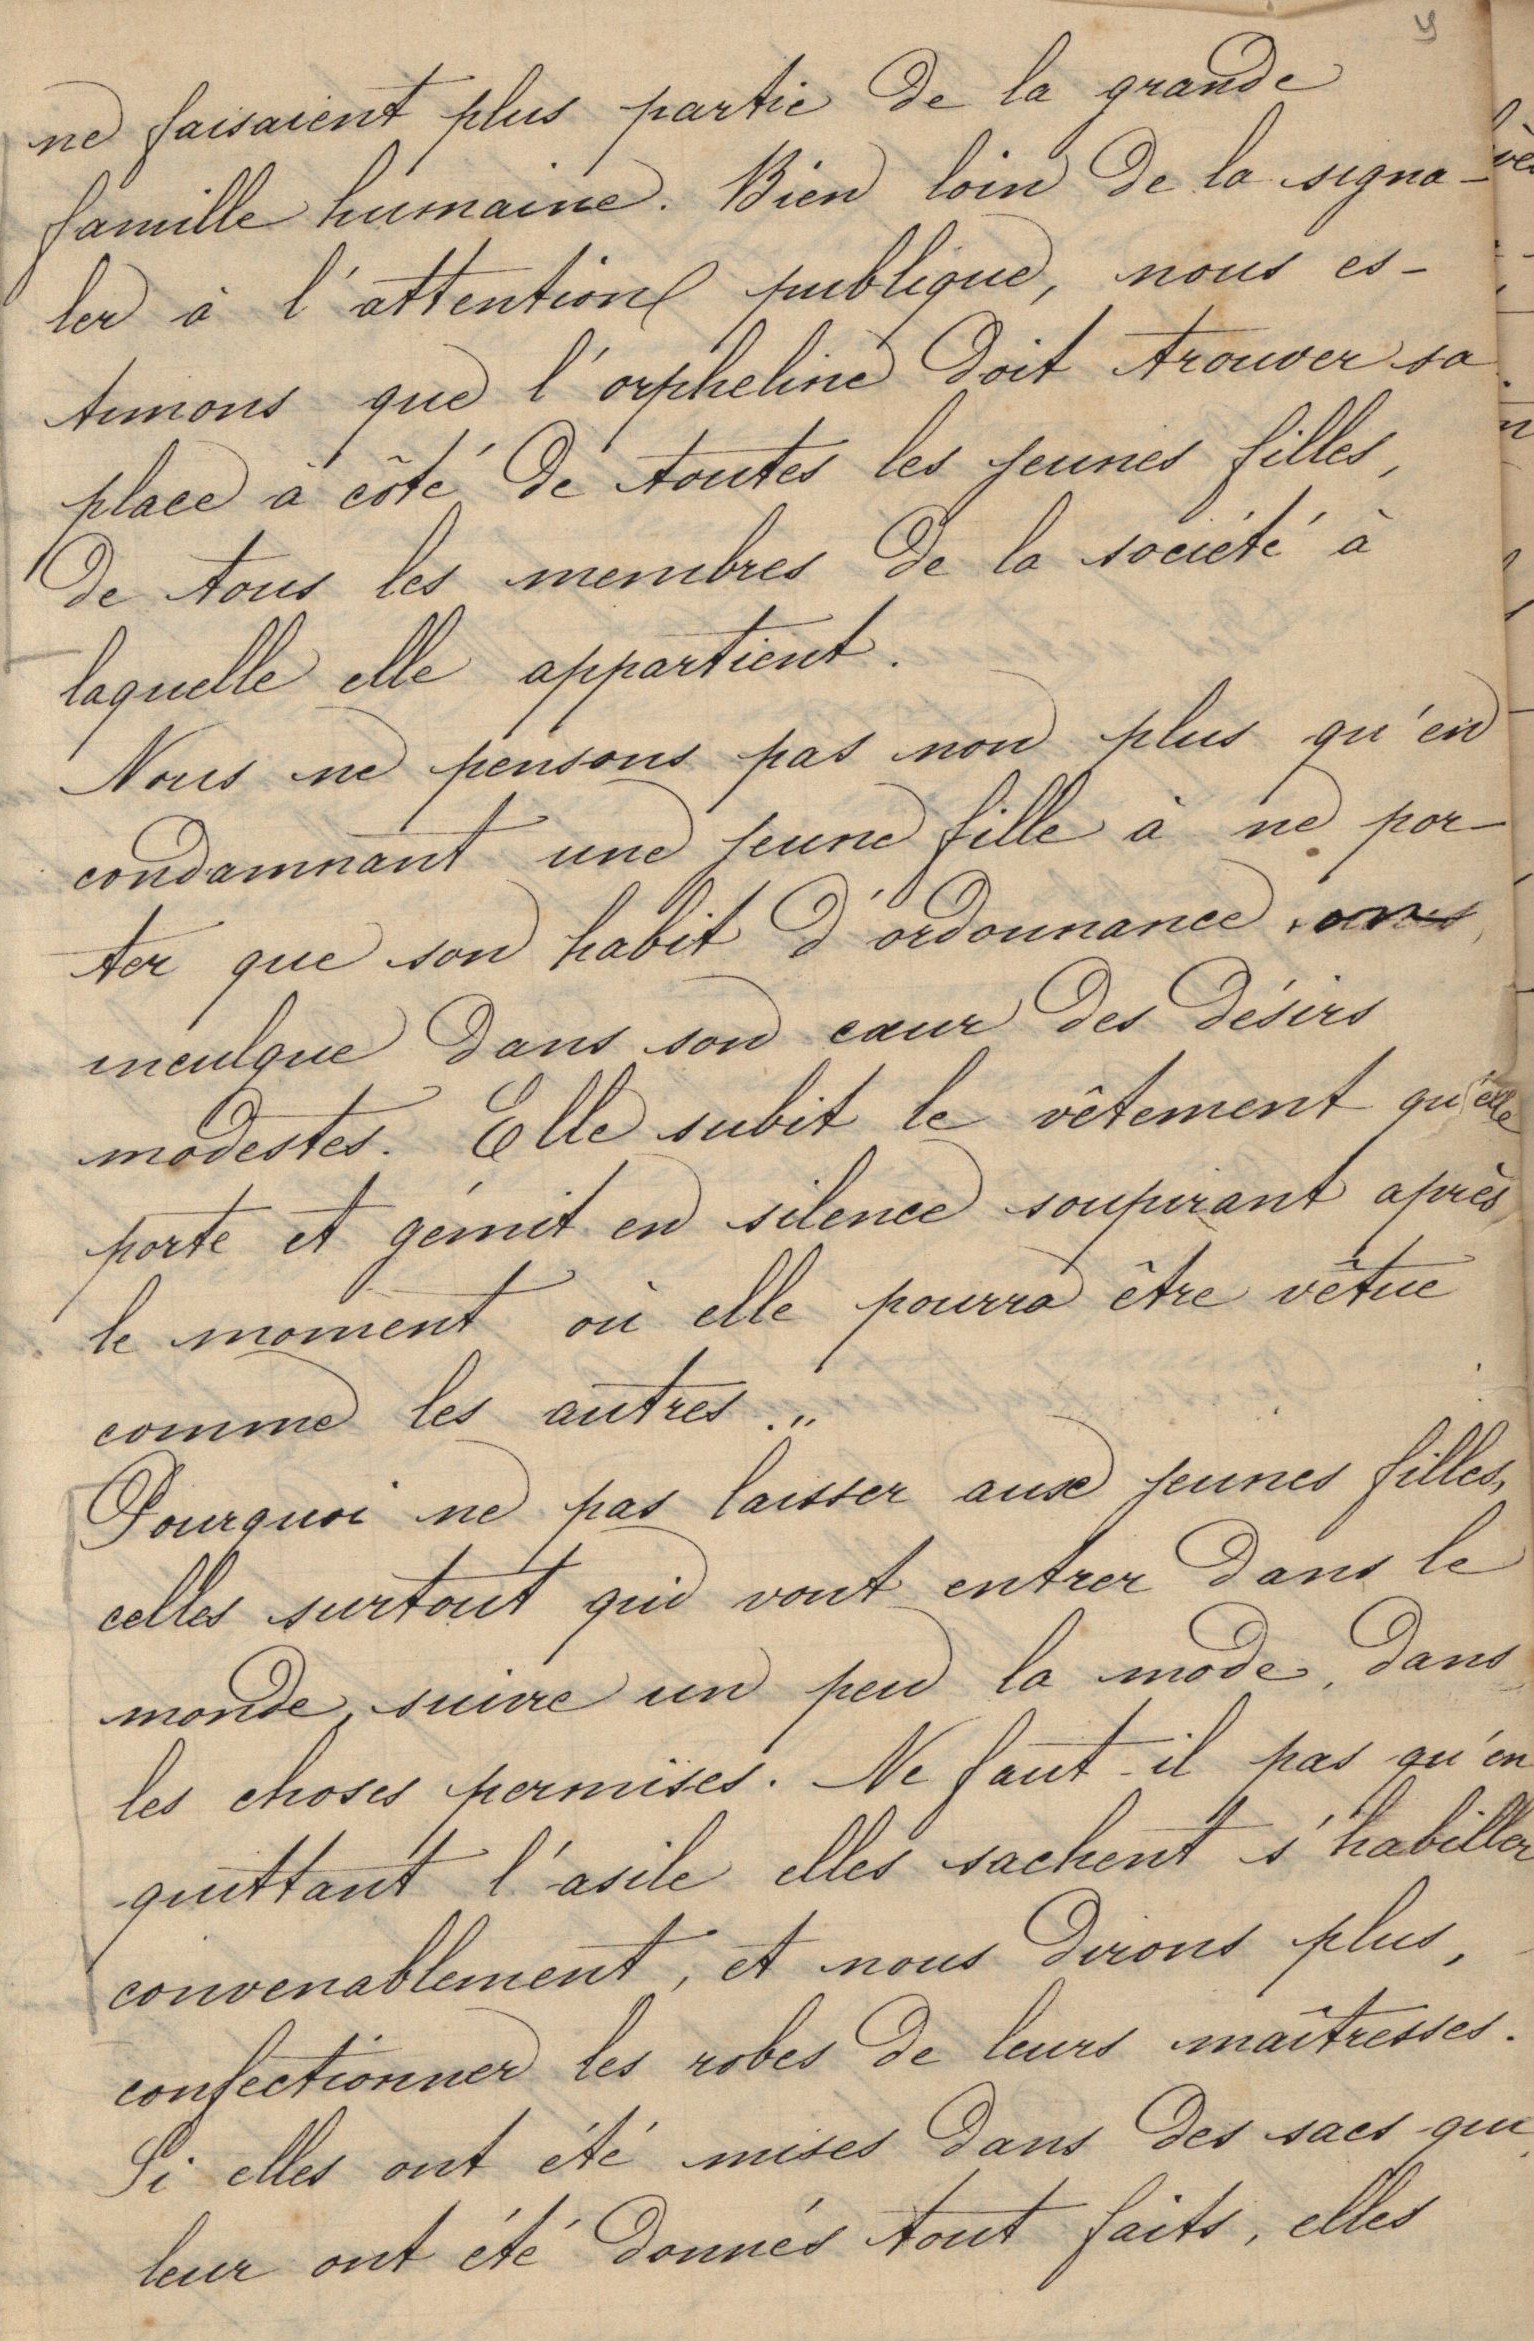 ne faisaient plus partie de la grande
famille humaine. Bien loin de la signa-
ler à l'attention publique, nous es-
timons que l'orpheline doit trouver sa
place à côté de toutes les jeunes filles,
de tous les membres de la société à
laquelle elle appartient.
Nous ne pensons pas non plus qu'en
condamnant une jeune fille à ne por-
ter que son habit d'ordonnance, on
inculque dans son cœur des désirs
modestes. Elle subit le vêtement qu'elle
porte et gémit en silence soupirant après
le moment où elle pourra être vêtue
comme les autres...
Pourquoi ne pas laisser aux jeunes filles,
celles surtout qui vont entrer dans le
monde, suivre un peu la mode, dans
les choses permises. Ne faut-il pas qu'en
quittant l'asile elles sachent s'habiller
convenablement, et nous dirons plus,
confectionner les robes de leurs maîtresses.
Si elles ont été mises dans des sacs qui
leur ont été donnés tout faits, elles